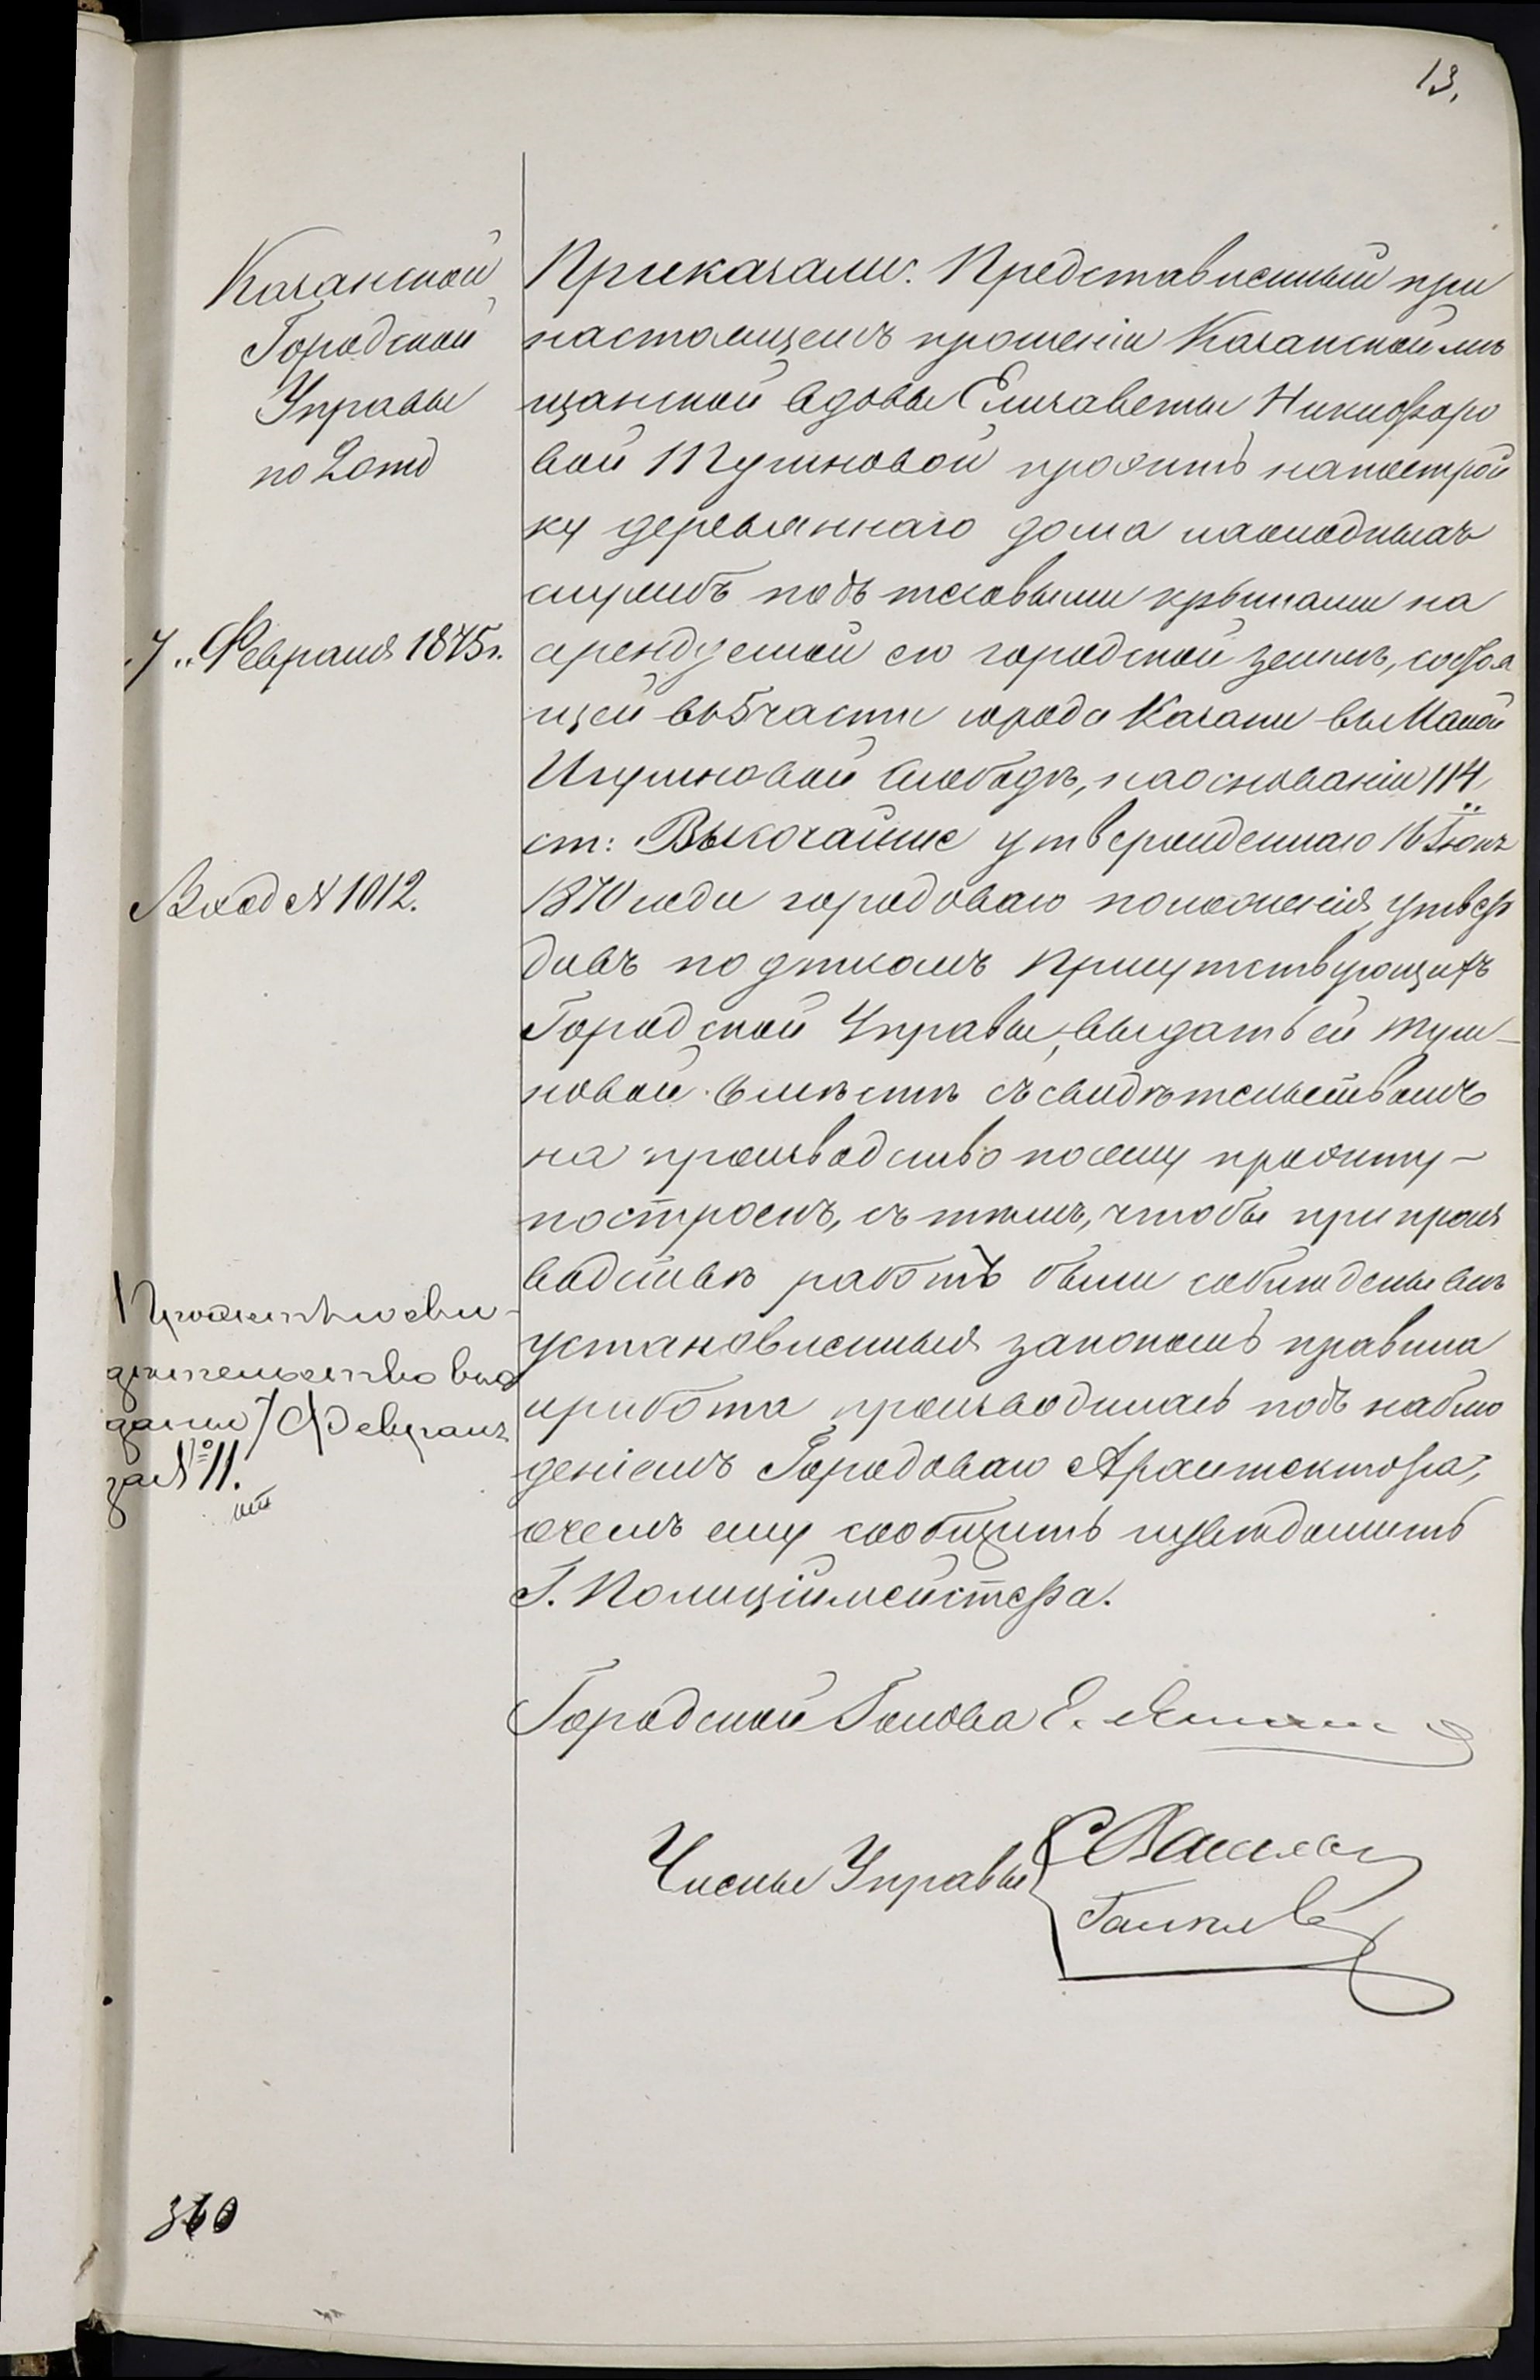 13.
Казанской
Городской
Управы
по 2 отд
7 „ Февраля 1875 г.
Вход № 1012.
Проэктъ и сви-
дѣтельство вы
даны 7 Февраля
за № 11.
Приказали: Представленный при
настоящемъ прошеніи Казанской мѣ
щанской вдовы Елизаветы Никифоро
вой Тушновой проэктъ на построй
ку деревяннаго дома и холодныхъ
службъ подъ тесовыми крышами на
арендуемой ею городской землѣ, состоя
щей въ 5 части города Казани въ Малой
Игумновой Слободѣ, на основаніи 114
ст: Высочайше утвержденнаго 16 Іюня
1870 года городоваго положенія, утвер
дивъ подписомъ Присутствующихъ
Городской Управы, выдать ей Туш-
новой вмѣстѣ съ свидѣтельствомъ
на производство по сему проэкту -
построекъ, съ тѣмъ, чтобы при произ
водствѣ работъ были соблюдены всѣ
установленныя закономъ правила
и работа производилась подъ наблю
деніемъ Городоваго Архитектора,
о чемъ ему сообщить и увѣдомить
Г. Полиціймейстера.
Городской Голова Е.
Члены Управы
360